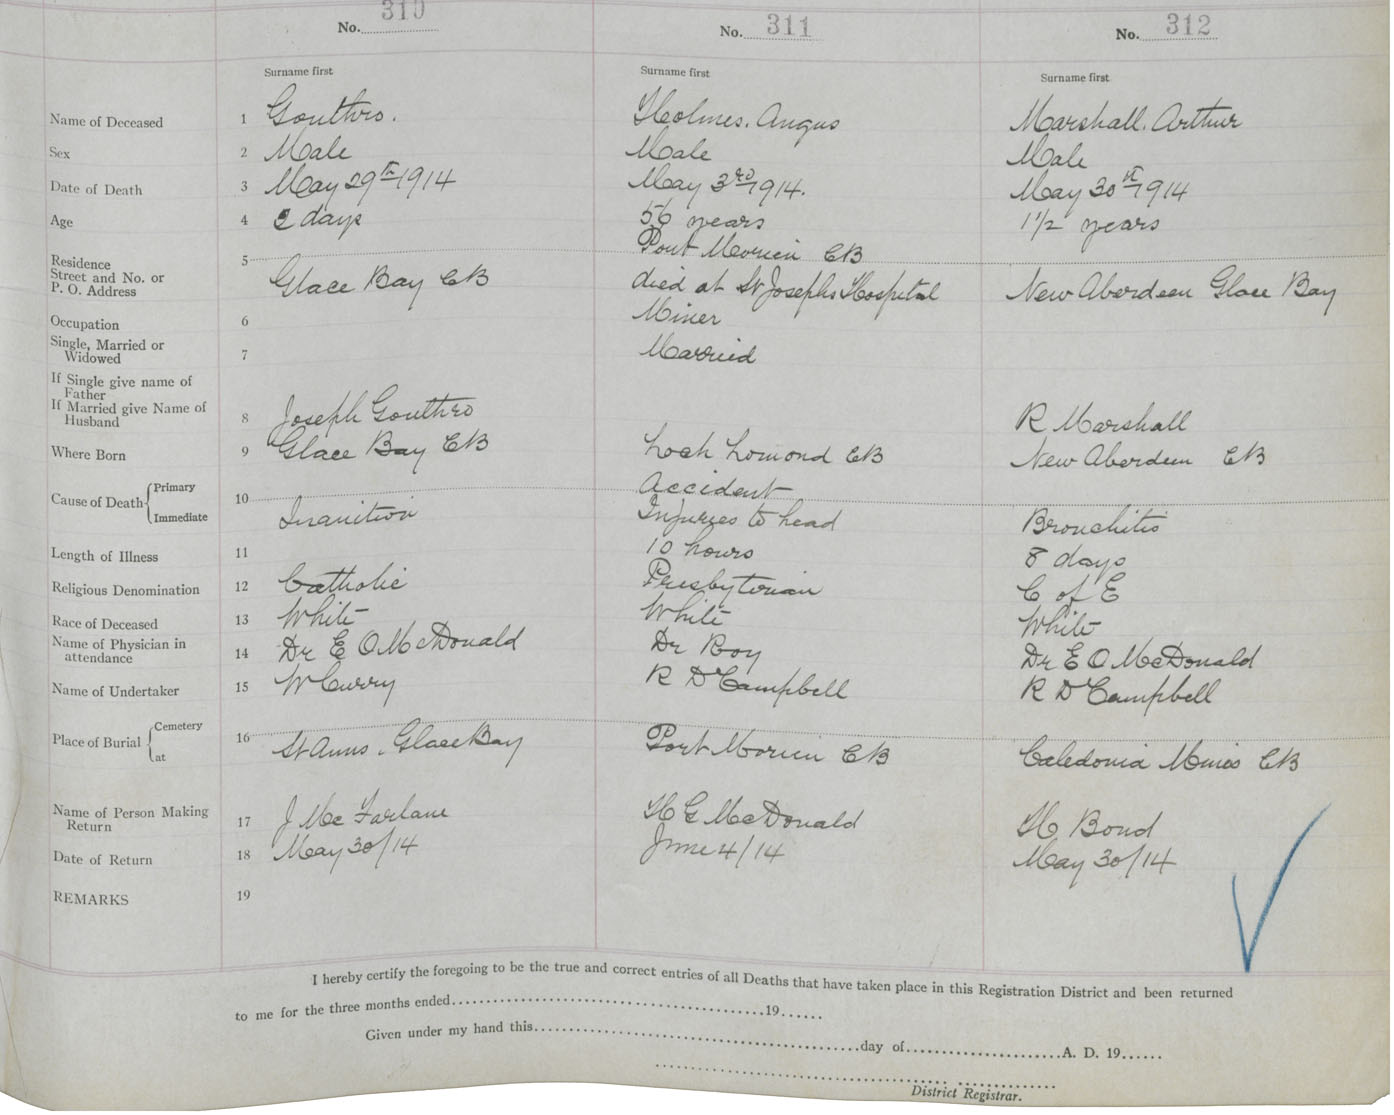 No. 310 No. 311 No. 312
Surname first Surname first Surname first
Name of Deceased 1 Gouthro. Holmes. Angus Marshall. Arthur
Sex 2 Male Male Male
Date of Death 3 May 29th 1914 May 3rd 1914. May 30th 1914
Age 4 2 days 56 years 1 1/2 years
Residence 5 Port Morien CB
Street and No. or Glace Bay CB died at St Josephs Hospital New Aberdeen Glace Bay
P. O. Address
Occupation 6 Miner
Single, Married or 7 Married
Widowed
If Single give name of
Father
If Married give Name of 8 Joseph Gouthro R Marshall
Husband
Where Born 9 Glace Bay CB Loch Lomond CB New Aberdeen CB
Cause of Death Primary 10 Accident
Immediate Inanition Injuries to head Bronchitis
Length of Illness 11 10 hours 8 days
Religious Denomination 12 Catholic Presbyterian C of E
Race of Deceased 13 White White White
Name of Physician in 14 Dr E O McDonald Dr Roy Dr E O McDonald
attendance
Name of Undertaker 15 W Curry R D Campbell R D Campbell
Place of Burial Cemetery 16
at St Anns. Glace Bay Port Morien CB Caledonia Mines CB
Name of Person Making 17 J McFarlane H G McDonald H Bond
Return
Date of Return 18 May 30/14 June 4/14 May 30/14
REMARKS 19
I hereby certify the foregoing to be the true and correct entries of all Deaths that have taken place in this Registration District and been returned
to me for the three months ended..........19......
Given under my hand this..........day of..........A. D. 19......
District Registrar.